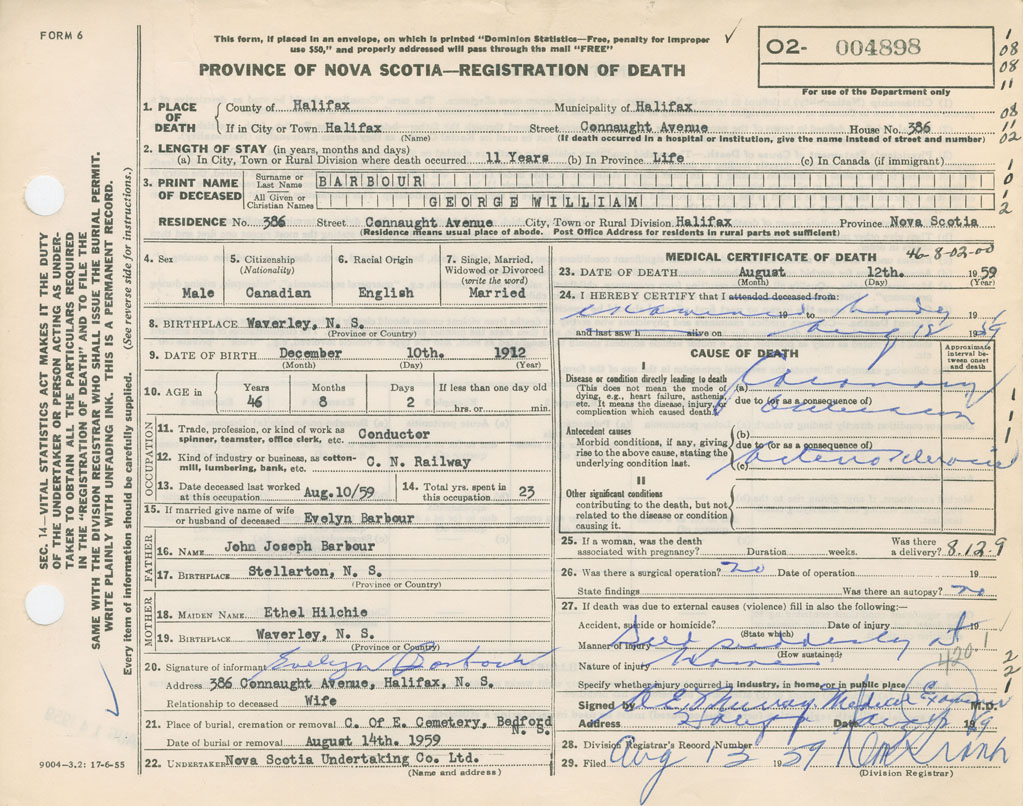 FORM 6
This form, if placed in an envelope, on which is printed "Dominion Statistics—Free, penalty for improper
use $50," and properly addressed will pass through the mail "FREE"
PROVINCE OF NOVA SCOTIA—REGISTRATION OF DEATH
O2- 004898
For use of the Department only
1. PLACE OF DEATH
County of Halifax Municipality of Halifax
If in City or Town Halifax Street Connaught Avenue House No. 386
(Name) (If death occurred in a hospital or institution, give the name instead of street and number)
2. LENGTH OF STAY (in years, months and days)
(a) In City, Town or Rural Division where death occurred 11 Years (b) In Province Life (c) In Canada (if immigrant)
3. PRINT NAME OF DECEASED
Surname or Last Name BARBOUR
All Given or Christian Names GEORGE WILLIAM
RESIDENCE No. 386 Street Connaught Avenue City, Town or Rural Division Halifax Province Nova Scotia
(Residence means usual place of abode. Post Office Address for residents in rural parts not sufficient)
4. Sex
Male
5. Citizenship
(Nationality)
Canadian
6. Racial Origin
English
7. Single, Married,
Widowed or Divorced
(write the word)
Married
8. BIRTHPLACE Waverley, N. S.
(Province or Country)
9. DATE OF BIRTH December 10th. 1912
(Month) (Day) (Year)
10. AGE in
Years Months Days If less than one day old
46 8 2 hrs. or min.
OCCUPATION
11. Trade, profession, or kind of work as
spinner, teamster, office clerk, etc. Conductor
12. Kind of industry or business, as cotton-
mill, lumbering, bank, etc. C. N. Railway
13. Date deceased last worked
at this occupation Aug.10/59
14. Total yrs. spent in
this occupation 23
15. If married give name of wife
or husband of deceased Evelyn Barbour
FATHER
16. NAME John Joseph Barbour
17. BIRTHPLACE Stellarton, N. S.
(Province or Country)
MOTHER
18. MAIDEN NAME Ethel Hilchie
19. BIRTHPLACE Waverley, N. S.
(Province or Country)
20. Signature of informant Evelyn Barbour
Address 386 Connaught Avenue, Halifax, N. S.
Relationship to deceased Wife
21. Place of burial, cremation or removal C. Of E. Cemetery, Bedford
N. S.
Date of burial or removal August 14th. 1959
22. UNDERTAKER Nova Scotia Undertaking Co. Ltd.
(Name and address)
MEDICAL CERTIFICATE OF DEATH 46-8-02-00
23. DATE OF DEATH August 12th. 1959
(Month) (Day) (Year)
24. I HEREBY CERTIFY that I attended deceased from:
examined 19 to body 19
and last saw h alive on Aug 19 59
CAUSE OF DEATH
Approximate
interval be-
tween onset
and death
I
Disease or condition directly leading to death
(This does not mean the mode of
dying, e.g., heart failure, asthenia,
etc. It means the disease, injury, or
complication which caused death.)
(a) Coronary
due to (or as a consequence of)
Antecedent causes
Morbid conditions, if any, giving
rise to the above cause, stating the
underlying condition last.
(b)
due to (or as a consequence of)
(c)
II
Other significant conditions
contributing to the death, but not
related to the disease or condition
causing it.
25. If a woman, was the death
associated with pregnancy? Duration weeks. Was there
a delivery? 8.12.9
26. Was there a surgical operation? no Date of operation 19
State findings Was there an autopsy? no
27. If death was due to external causes (violence) fill in also the following:—
Accident, suicide or homicide? Date of injury 19
(State which)
Manner of injury Died suddenly at
(How sustained)
Nature of injury Home
420.1
Specify whether injury occurred in industry, in home, or in public place
Signed by Murray Medical Examiner M.D.
Address Date Aug 19
28. Division Registrar's Record Number
29. Filed Aug 13 1959
(Division Registrar)
SEC. 14—VITAL STATISTICS ACT MAKES IT THE DUTY
OF THE UNDERTAKER OR PERSON ACTING AS UNDER-
TAKER TO OBTAIN ALL THE PARTICULARS REQUIRED
IN THE "REGISTRATION OF DEATH" AND TO FILE THE
SAME WITH THE DIVISION REGISTRAR WHO SHALL ISSUE THE BURIAL PERMIT.
WRITE PLAINLY WITH UNFADING INK. THIS IS A PERMANENT RECORD.
Every item of information should be carefully supplied. (See reverse side for instructions.)
9004—3.2: 17-6-55
1
08
08
11
08
11
02
1
0
1
2
1
1
1
1
2
2
1